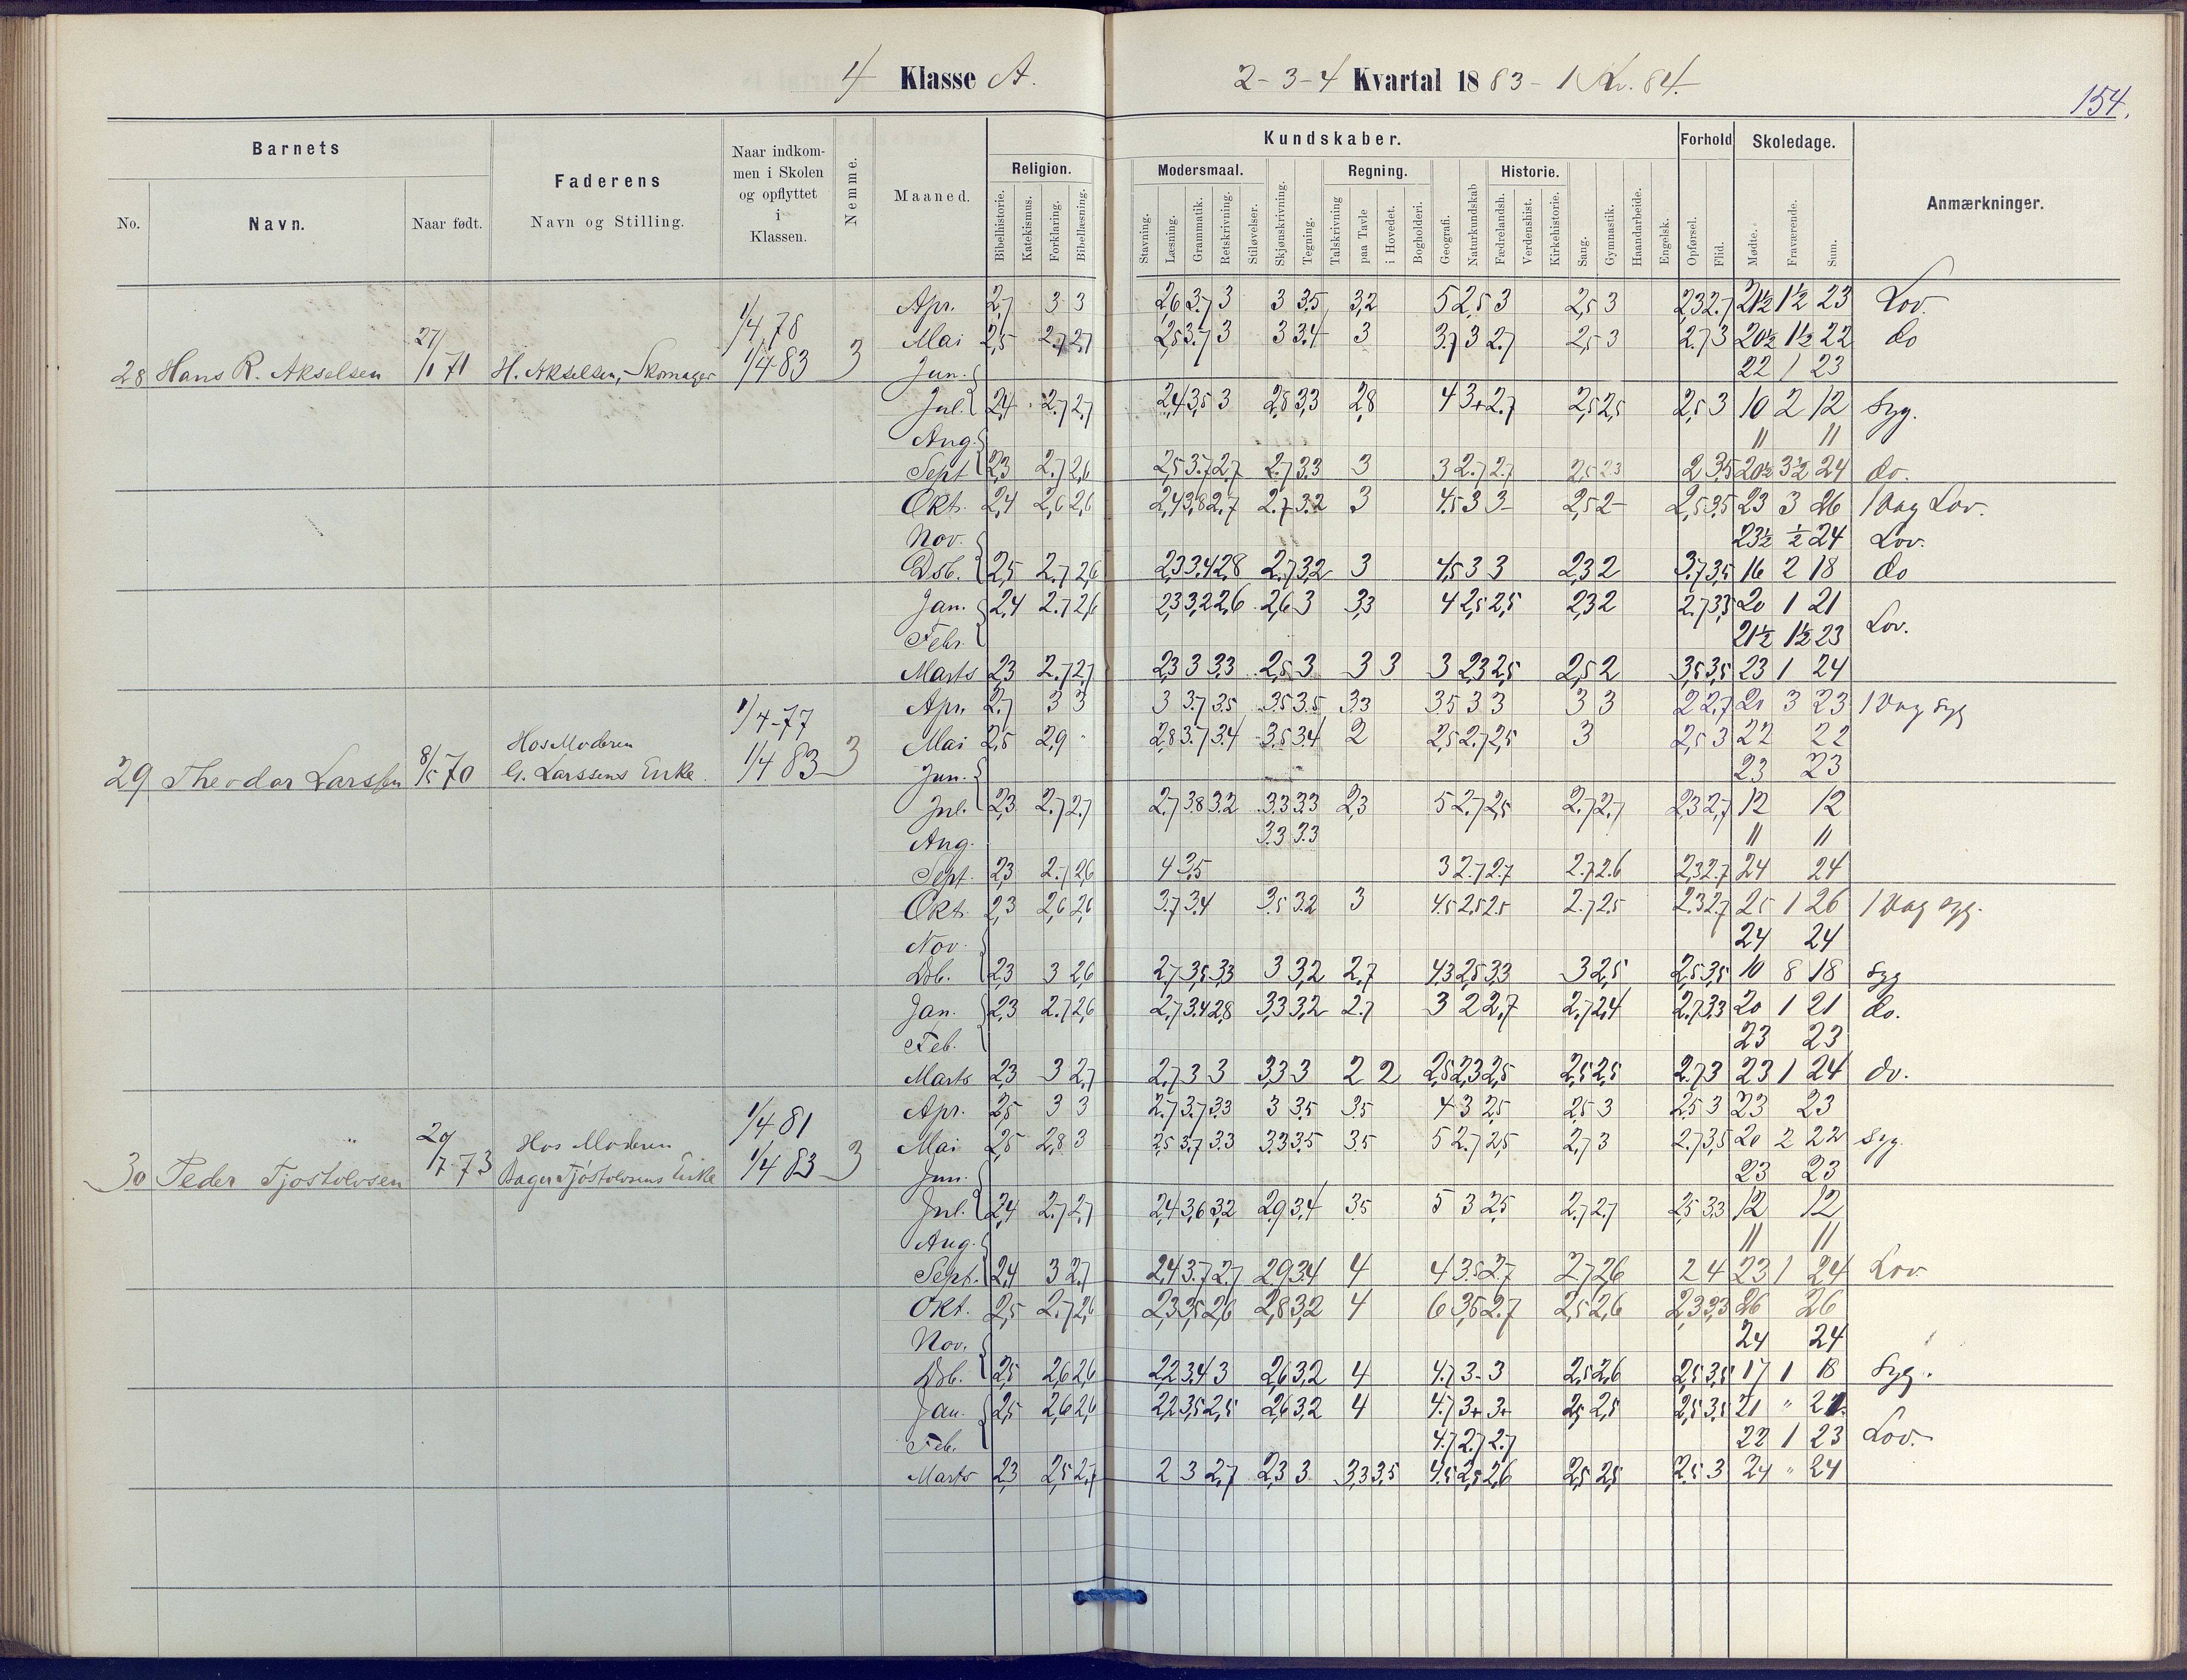 4 Klasse A. 2-3-4 Kvartal 1883 - 1 Kv. 84.
154.
Barnets
No. Navn. Naar født.
Faderens
Navn og Stilling.
Naar indkom-
men i Skolen
og opflyttet
i
Klassen.
Nemme.
Maaned.
Kundskaber.
Religion.
Bibelhistorie. Katekismus. Forklaring. Bibellæsning.
Modersmaal.
Stavning. Læsning. Grammatik. Retskrivning. Stiløvelser.
Skjønskrivning. Tegning.
Regning.
Talskrivning paa Tavle i Hovedet. Bogholderi.
Geografi. Naturkundskab
Historie.
Fædrelandsh. Verdenshist. Kirkehistorie.
Sang. Gymnastik. Haandarbeide. Engelsk.
Forhold
Opførsel. Flid.
Skoledage.
Mødte. Fraværende. Sum.
Anmærkninger.
28 Hans R. Akselsen 27/1 71 H. Akselsen, Skomager 1/4 78 1/4-83 3
Apr. 2,7 3 3 2,6 3,7 3 3 3,5 3,2 5 2,5 3 2,5 3 2,3 2,7 21½ 1½ 23 Lov.
Mai 2,5 2,7 2,7 2,5 3,7 3 3 3,4 3 3,7 3 2,7 2,5 3 2,7 3 20½ 1½ 22 do
Jun. 22 1 23
Jul. 2,4 2,7 2,7 2,4 3,5 3 2,8 3,3 2,8 4 3+ 2,7 2,5 2,5 2,5 3 10 2 12 Syg.
Aug. 11 11
Sept 2,3 2,7 2,6 2,5 3,7 2,7 2,7 3,3 3 3 2,7 2,7 2,5 2,3 2 3,5 20½ 3½ 24 do.
Okt. 2,4 2,6 2,6 2,4 3,8 2,7 2,7 3,2 3 4,5 3 3- 2,5 2- 2,5 3,5 23 3 26 1 Dag Lov.
Nov. 23½ ½ 24 Lov.
Dsb. 2,5 2,7 2,6 2,3 3,4 2,8 2,7 3,2 3 4,5 3 3 2,3 2 3,7 3,5 16 2 18 do
Jan. 2,4 2,7 2,6 2,3 3,2 2,6 2,6 3 3,3 4 2,5 2,5 2,3 2 2,7 3,5 20 1 21
Febr. 21½ 1½ 23 Lov.
Marts 2,3 2,7 2,7 2,3 3 3,3 2,5 3 3 3 3 2,3 2,5 2,5 2 3,5 3,5 23 1 24
29 Theodor Larssen 8/5 70 Hos Moderen
G. Larssens Enke. 1/4-77 1/4 83 3
Apr. 2,7 3 3 3 3,7 3,5 3,5 3,5 3,3 3,5 3 3 3 3 2 2,7 20 3 23 1 Dag Syg
Mai 2,5 2,9 - 2,8 3,7 3,4 3,5 3,4 2 2,5 2,7 2,5 3 2,5 3 22 22
Jun. 23 23
Jul. 2,3 2,7 2,7 2,7 3,8 3,2 3,3 3,3 2,3 5 2,7 2,5 2,7 2,7 2,3 2,7 12 12
Aug. 3,3 3,3 11 11
Sept. 2,3 2,7 2,6 4 3,5 3 2,7 2,7 2,7 2,6 2,3 2,7 24 24
Okt. 2,3 2,6 2,6 3,7 3,4 3,5 3,2 3 4,5 2,5 2,5 2,7 2,5 2,3 2,7 25 1 26 1 Dag syg.
Nov. 24 24
Dsb. 2,3 3 2,6 2,7 3,5 3,3 3 3,2 2,7 4,3 2,5 3,3 3 2,5 2,5 3,5 10 8 18 Syg
Jan. 2,3 2,7 2,6 2,7 3,4 2,8 3,3 3,2 2,7 3 2 2,7 2,7 2,4 2,7 3,3 20 1 21 do.
Feb. 23 23
Marts 2,3 3 2,7 2,7 3 3 3,3 3 2 2 2,5 2,3 2,5 2,5 2,5 2,7 3 23 1 24 do.
30 Peder Tjostolvsen 29/7-73 Hos Moderen
Bager Tjøstolvsens Enke 1/4 81 1/4 83 3
Apr. 2,5 3 3 2,7 3,7 3,3 3 3,5 3,5 4 3 2,5 2,5 3 2,5 3 23 23
Mai 2,5 2,8 3 2,5 3,7 3,3 3,3 3,5 3,5 5 2,7 2,5 2,7 3 2,7 3,5 20 2 22 Syg.
Jun. 23 23
Jul. 2,4 2,7 2,7 2,4 3,6 3,2 2,9 3,4 3,5 5 3 2,5 2,7 2,7 2,5 3,3 12 12
Aug. 11 11
Sept. 2,4 3 2,7 2,4 3,7 2,7 2,9 3,4 4 4 3,5 2,7 2,7 2,6 2 4 23 1 24 Lov
Okt. 2,5 2,7 2,6 2,3 3,5 2,6 2,8 3,2 4 6 3,5 2,7 2,5 2,6 2,3 3,3 26 26
Nov. 24 24
Dsb. 2,5 2,6 2,6 2,2 3,4 3 2,6 3,2 4 4,7 3- 3 2,5 2,6 2,5 3,5 17 1 18 Syg.
Jan. 2,5 2,6 2,6 2,2 3,5 2,5 2,6 3,2 4 4,7 3+ 3+ 2,5 2,5 2,5 3,5 21 " 21.
Feb. 4,7 2,7 2,7 22 1 23 Lov.
Marts 2,3 2,5 2,7 2 3 2,7 2,3 3 3,3 3,5 4,5 2,5 2,6 2,5 2,5 2,5 3 24 " 24